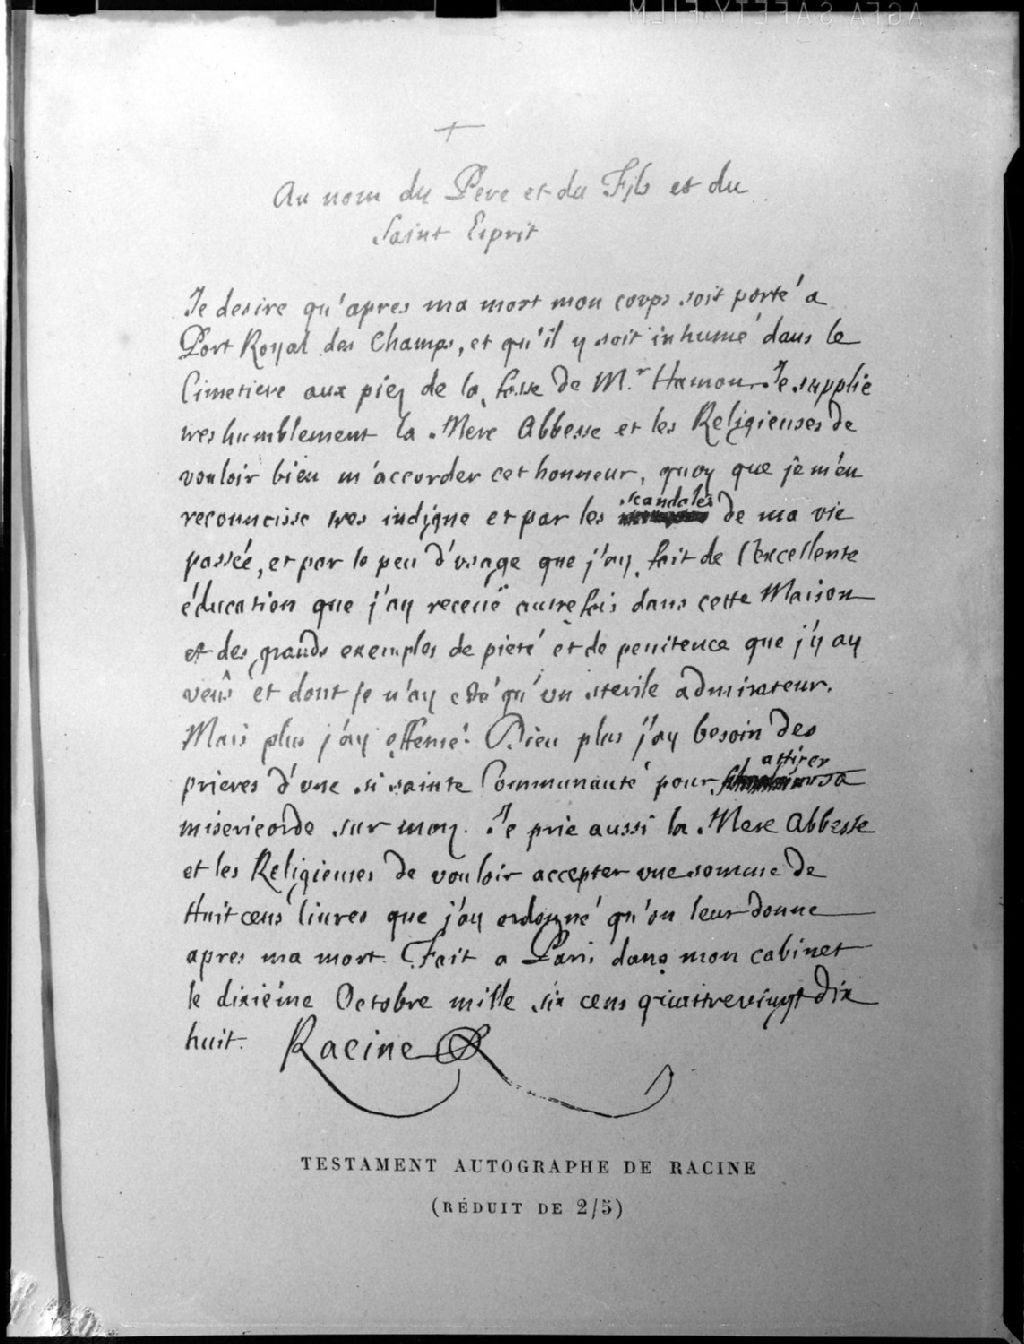 AGFA SAFETY FILM
Au nom du Pere et du Fils et du
Saint Esprit
Je desire qu'apres ma mort mon corps soit porté a
Port Royal des Champs, et qu'il y soit inhumé dans le
Cimetiere aux piez de la fosse de M.r Hamon. Je supplie
tres humblement la Mere Abbesse et les Religieuses de
vouloir bien m'accorder cet honneur, quoy que je m'en
reconnoisse tres indigne et par les scandales de ma vie
passée, et par le peu d'usage que j'ay fait de l'excellente
éducation que j'ay receuë autrefois dans cette Maison
et des grands exemples de pieté et de penitence que j'y ay
veus et dont je n'ay esté qu'un sterile admirateur.
Mais plus j'ay offensé Dieu plus j'ay besoin des
prieres d'une si sainte Communauté pour attirer sa
misericorde sur moy. Je prie aussi la Mere Abbesse
et les Religieuses de vouloir accepter une somme de
Huit cens livres que j'ay ordonné qu'on leur donne
apres ma mort. Fait a Paris dans mon cabinet
le dixiéme Octobre mille six cens quattrevingt dix
huit. Racine
TESTAMENT AUTOGRAPHE DE RACINE
(RÉDUIT DE 2/5)